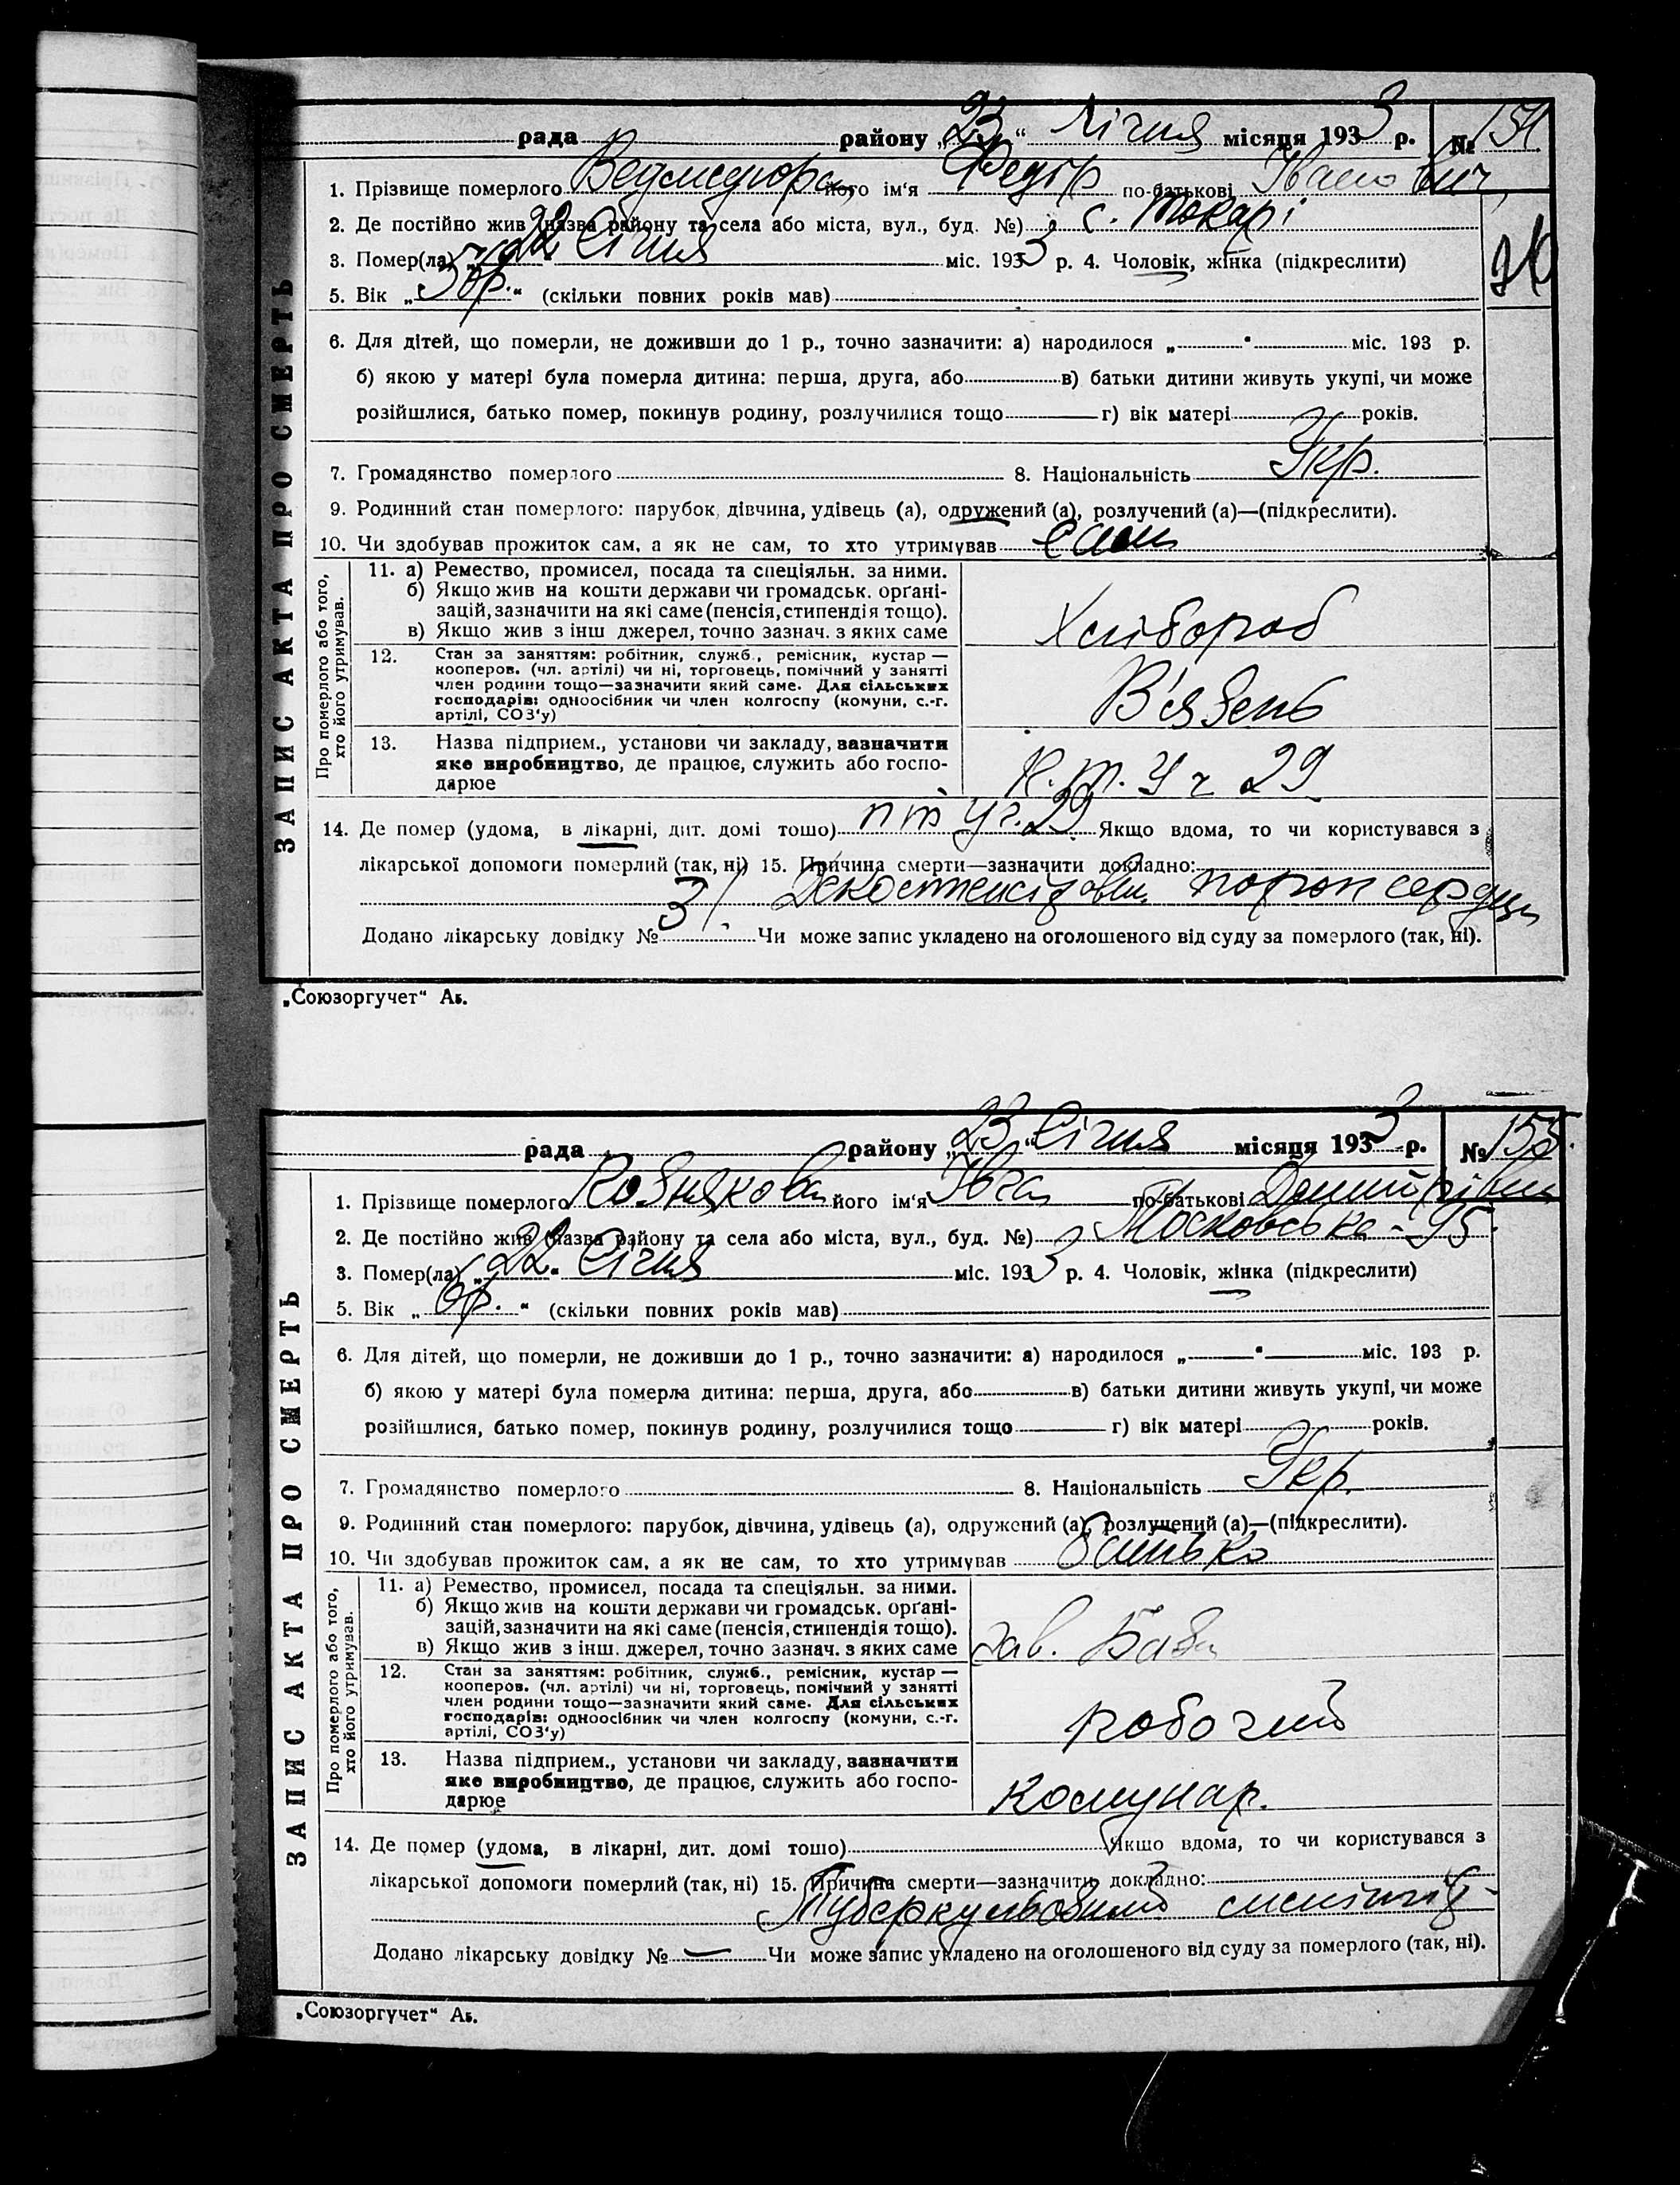 рада району „23“ Січня місяця 1933 р. № 154.
1. Прізвище померлого його ім'я Федір по-батькові Іванович
2. Де постійно жив (назва району та села або міста, вул., буд. №) с. Токарі
3. Помер(ла) „22“ Січня міс. 1933 р. 4. Чоловік, жінка (підкреслити)
5. Вік „ р.“ (скільки повних років мав)
6. Для дітей, що померли, не доживши до 1 р., точно зазначити: а) народилося „ “ міс. 193 р.
б) якою у матері була померла дитина: перша, друга, або в) батьки дитини живуть укупі, чи може
розійшлися, батько помер, покинув родину, розлучилися тощо г) вік матері років.
7. Громадянство померлого 8. Національність Укр.
9. Родинний стан померлого: парубок, дівчина, удівець (а), одружений (а), розлучений (а)—(підкреслити).
10. Чи здобував прожиток сам, а як не сам, то хто утримував сам
ЗАПИС АКТА ПРО СМЕРТЬ
Про померлого або того, хто його утримував.
11. а) Ремество, промисел, посада та спеціяльн. за ними.
б) Якщо жив на кошти держави чи громадськ. орґані-
зацій, зазначити на які саме (пенсія, стипендія тощо).
в) Якщо жив з інш джерел, точно зазнач. з яких саме
Хлібороб
12. Стан за заняттям: робітник, служб., ремісник, кустар —
кооперов. (чл. артілі) чи ні, торговець, помічний у занятті
член родини тощо—зазначити який саме. Для сільських
господарів: одноосібник чи член колгоспу (комуни, с.-г.
артілі, СОЗ'у)
В'язень
13. Назва підприєм., установи чи закладу, зазначити
яке виробництво, де працює, служить або госпо-
дарює
Уч 29
14. Де помер (удома, в лікарні, дит. домі тощо) п т уч. 29 Якщо вдома, то чи користувався з
лікарської допомоги померлий (так, ні) 15. Причина смерти—зазначити докладно:
порок сердця
Додано лікарську довідку № 31. Чи може запис укладено на оголошеного від суду за померлого (так, ні).
„Союзоргучет“ Аг.
рада району „23“ Січня місяця 1933 р. № 155.
1. Прізвище померлого Познякова його ім'я Івга по-батькові Дмитрівна
2. Де постійно жив (назва району та села або міста, вул., буд. №) Московська - 95.
3. Помер(ла) „22“ Січня міс. 1933 р. 4. Чоловік, жінка (підкреслити)
5. Вік „6р.“ (скільки повних років мав)
6. Для дітей, що померли, не доживши до 1 р., точно зазначити: а) народилося „ “ міс. 193 р.
б) якою у матері була померла дитина: перша, друга, або в) батьки дитини живуть укупі, чи може
розійшлися, батько помер, покинув родину, розлучилися тощо г) вік матері років.
7. Громадянство померлого 8. Національність Укр.
9. Родинний стан померлого: парубок, дівчина, удівець (а), одружений (а), розлучений (а)—(підкреслити).
10. Чи здобував прожиток сам, а як не сам, то хто утримував батько
ЗАПИС АКТА ПРО СМЕРТЬ
Про померлого або того, хто його утримував.
11. а) Ремество, промисел, посада та спеціяльн. за ними.
б) Якщо жив на кошти держави чи громадськ. орґані-
зацій, зазначити на які саме (пенсія, стипендія тощо).
в) Якщо жив з інш. джерел, точно зазнач. з яких саме
зав. Бази
12. Стан за заняттям: робітник, служб., ремісник, кустар —
кооперов. (чл. артілі) чи ні, торговець, помічний у занятті
член родини тощо—зазначити який саме. Для сільських
господарів: одноосібник чи член колгоспу (комуни, с.-г.
артілі, СОЗ'у)
робочий
13. Назва підприєм., установи чи закладу, зазначити
яке виробництво, де працює, служить або госпо-
дарює
Комунар.
14. Де помер (удома, в лікарні, дит. домі тощо) Якщо вдома, то чи користувався з
лікарської допомоги померлий (так, ні) 15. Причина смерти—зазначити докладно:
Туберкульозний менінгіт
Додано лікарську довідку № — Чи може запис укладено на оголошеного від суду за померлого (так, ні).
„Союзоргучет“ Аг.